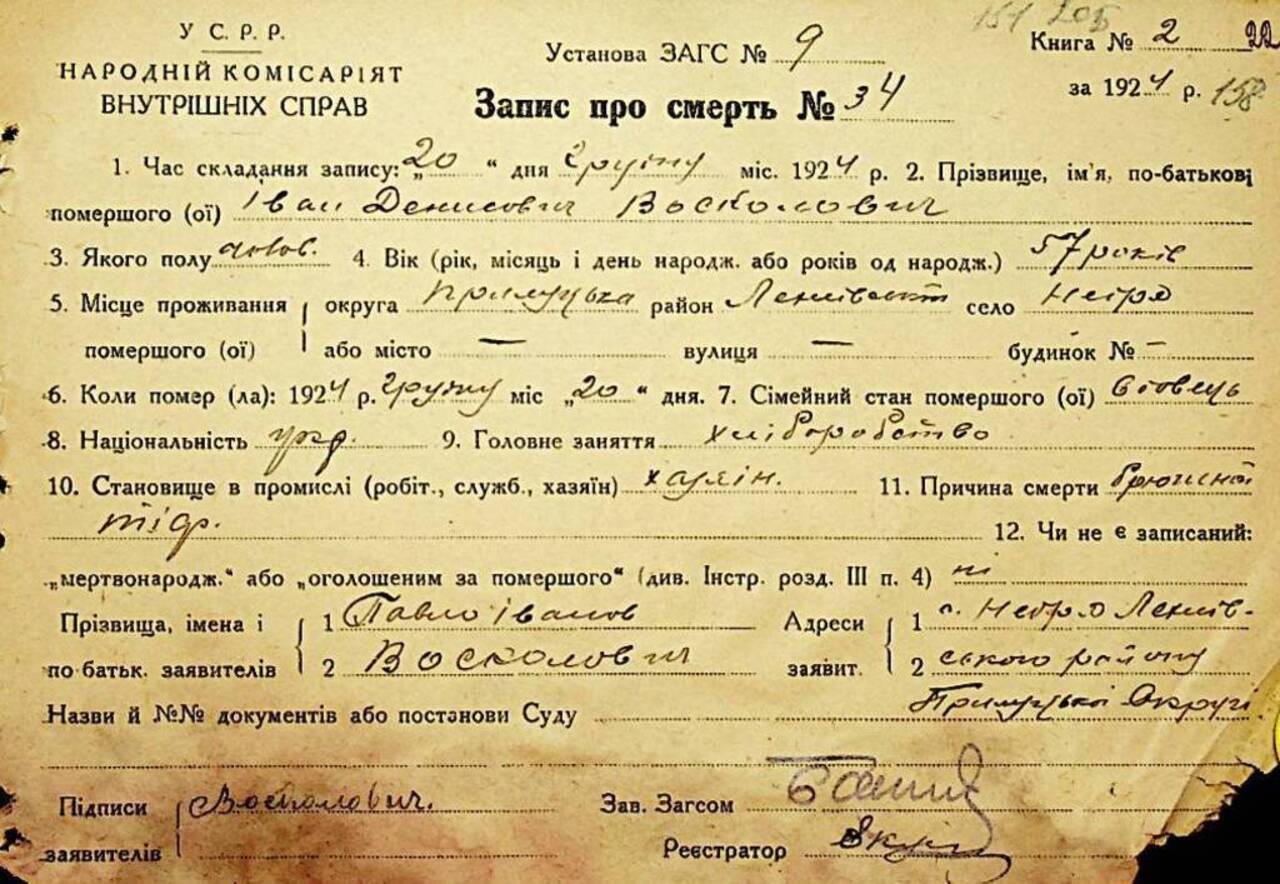 У С. Р. Р.
НАРОДНІЙ КОМІСАРІЯТ
ВНУТРІШНІХ СПРАВ
Установа ЗАГС № 9
Запис про смерть № 34
Книга № 2 22
за 1924 р. 158
1. Час складання запису: „20“ дня грудну міс. 1924 р. 2. Прізвище, ім'я, по-батькові
помершого (ої) Іван Денисович Восколович
3. Якого полу чолов. 4. Вік (рік, місяць і день народж. або років од народж.) 57 років
5. Місце проживання округа Прилуцька район село
помершого (ої) або місто — вулиця — будинок № —
6. Коли помер (ла): 1924 р. грудну міс „20“ дня. 7. Сімейний стан помершого (ої) вдовець
8. Національність укр. 9. Головне заняття хліборобство
10. Становище в промислі (робіт., служб., хазяїн) хазяін. 11. Причина смерти брюшной
тіф. 12. Чи не є записаний:
„мертвонародж.“ або „оголошеним за помершого“ (див. Інстр. розд. III п. 4) ні
Прізвища, імена і 1 Павло Іванов Адреси 1 с.
по батьк. заявителів 2 Восколович заявит. 2 ського району
Назви й №№ документів або постанови Суду Прилуцької Округи
Підписи Восколович. Зав. Загсом
заявителів Реєстратор